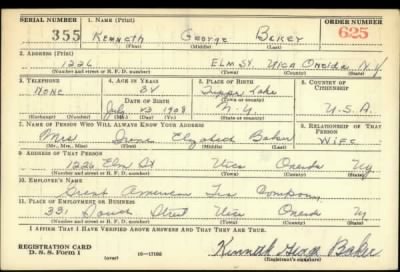 SERIAL NUMBER 1. NAME (Print) ORDER NUMBER
355 Kenneth George Baker 625
(First) (Middle) (Last)
2. ADDRESS (Print)
1226 ELM ST. Utica Oneida N.Y.
(Number and street or R. F. D. number) (Town) (County) (State)
3. TELEPHONE 4. AGE IN YEARS 5. PLACE OF BIRTH 6. COUNTRY OF CITIZENSHIP
None 32 Tupper Lake
DATE OF BIRTH (Town or county)
July 23 1908 N.Y. U.S.A.
(Exchange) (Number) (Mo.) (Day) (Yr.) (State or country)
7. NAME OF PERSON WHO WILL ALWAYS KNOW YOUR ADDRESS 8. RELATIONSHIP OF THAT PERSON
Mrs Irene Elizabeth Baker Wife
(Mr., Mrs., Miss) (First) (Middle) (Last)
9. ADDRESS OF THAT PERSON
1226 Elm St Utica Oneida Ny
(Number and street or R. F. D. number) (Town) (County) (State)
10. EMPLOYER'S NAME
Great American Tea Company
11. PLACE OF EMPLOYMENT OR BUSINESS
331 Street Utica Oneida Ny
(Number and street or R. F. D. number) (Town) (County) (State)
I AFFIRM THAT I HAVE VERIFIED ABOVE ANSWERS AND THAT THEY ARE TRUE.
REGISTRATION CARD
D. S. S. Form 1 (over) Kenneth George Baker
(Registrant's signature)